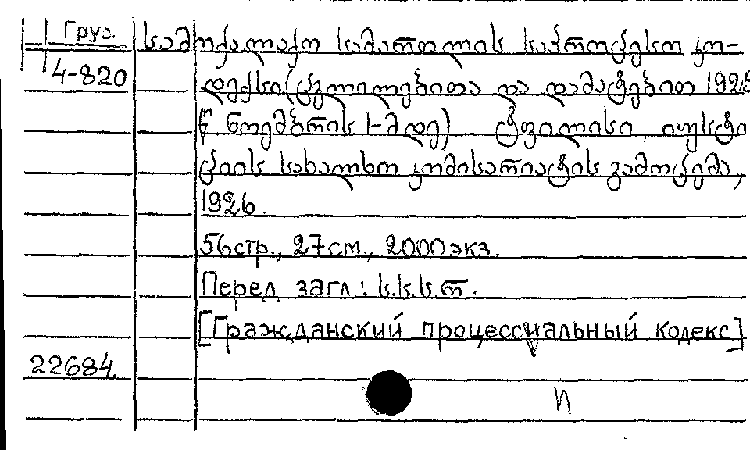 Груз. სამოქალაქო სამართლის საპროცესო კო-
4-820 დექსი (ცვლილებითა და დამატებით 1926
წ. ნოემბრის 1-მდე) ტფილისი იუსტი
ციის სახალხო კომისარიატის გამოცემა,
1926.
56 стр., 27 см., 2000 экз.
Перед загл.: ს.ს.ს.რ.
[Гражданский процессуальный кодекс]
22684
И